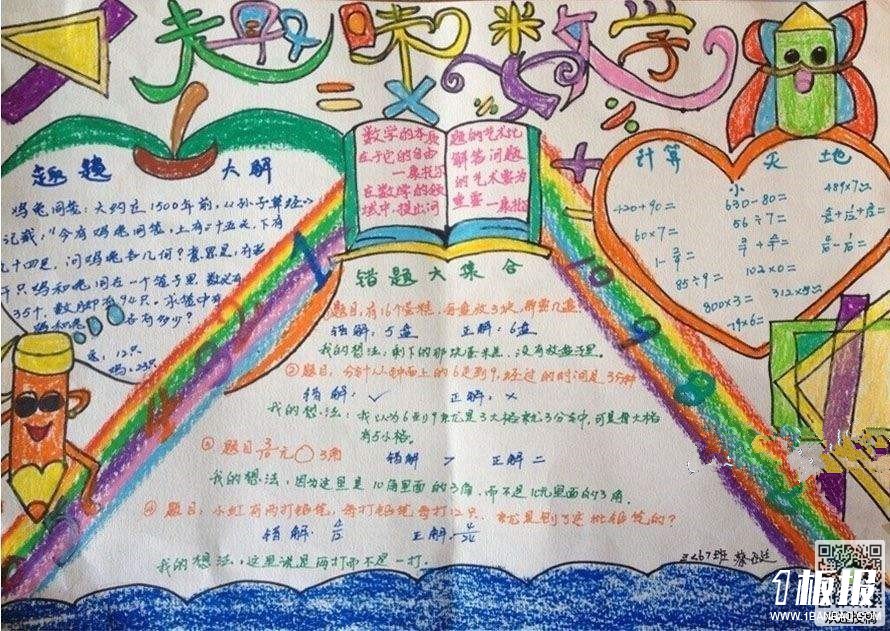 趣味数学
= × % ÷
+ =
趣题大解
鸡兔同笼:大约在1500年前,《孙子算经》
记载,"今有鸡兔同笼,上有三十五头,下有
九十四足,问鸡兔各几何?意思是,有若
干只鸡和兔同在一个笼子里,数头有
35个,数脚有94只,求笼中有
鸡和兔各有多少?
兔:12只
鸡:23只
数学的本质
在于它的自由
—康托尔
在数学的领
域中,提出问
题的艺术比
解答问题
的艺术更为
重要
—康托
计算小天地
420+90=
630-80=
489×7=
60×7=
56÷7=
85÷9=
102×0=
800×3=
312×5=
79×6=
错题大集合
题目,有16个蛋糕,每盘放3块,那需几盘
错解:5盘 正解:6盘
我的想法:剩下的那块蛋糕,没有放盘子里。
②题目,分针从钟面上的6走到9,经过的时间是35分
错解:√ 正解:×
我的想法:我以为6到9就是3大格就是3分钟,可是每大格
有5小格。
题目 元○3角
错解 > 正解 =
我的想法,因为这里是10角里面的3角,而不是1元里面的3角。
④题目,小红有两打铅笔,每打铅笔每打12只,
错解: 正解:
我的想法,这里说是两打而不是一打。
1 2 3 4 5
10 9 8
三〈6〉班
1板报
WWW.1BANBAO.COM